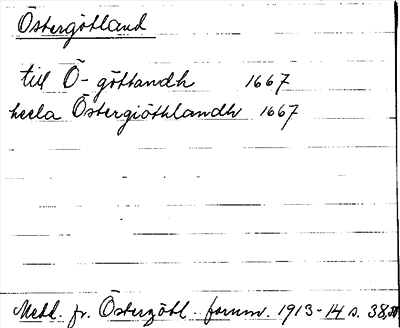 Östergötland
till Ö- göttandh 1667
heela Östergiöthlandh 1667
Medl. fr. Östergötl. fornm. 1913-14 s. 38,